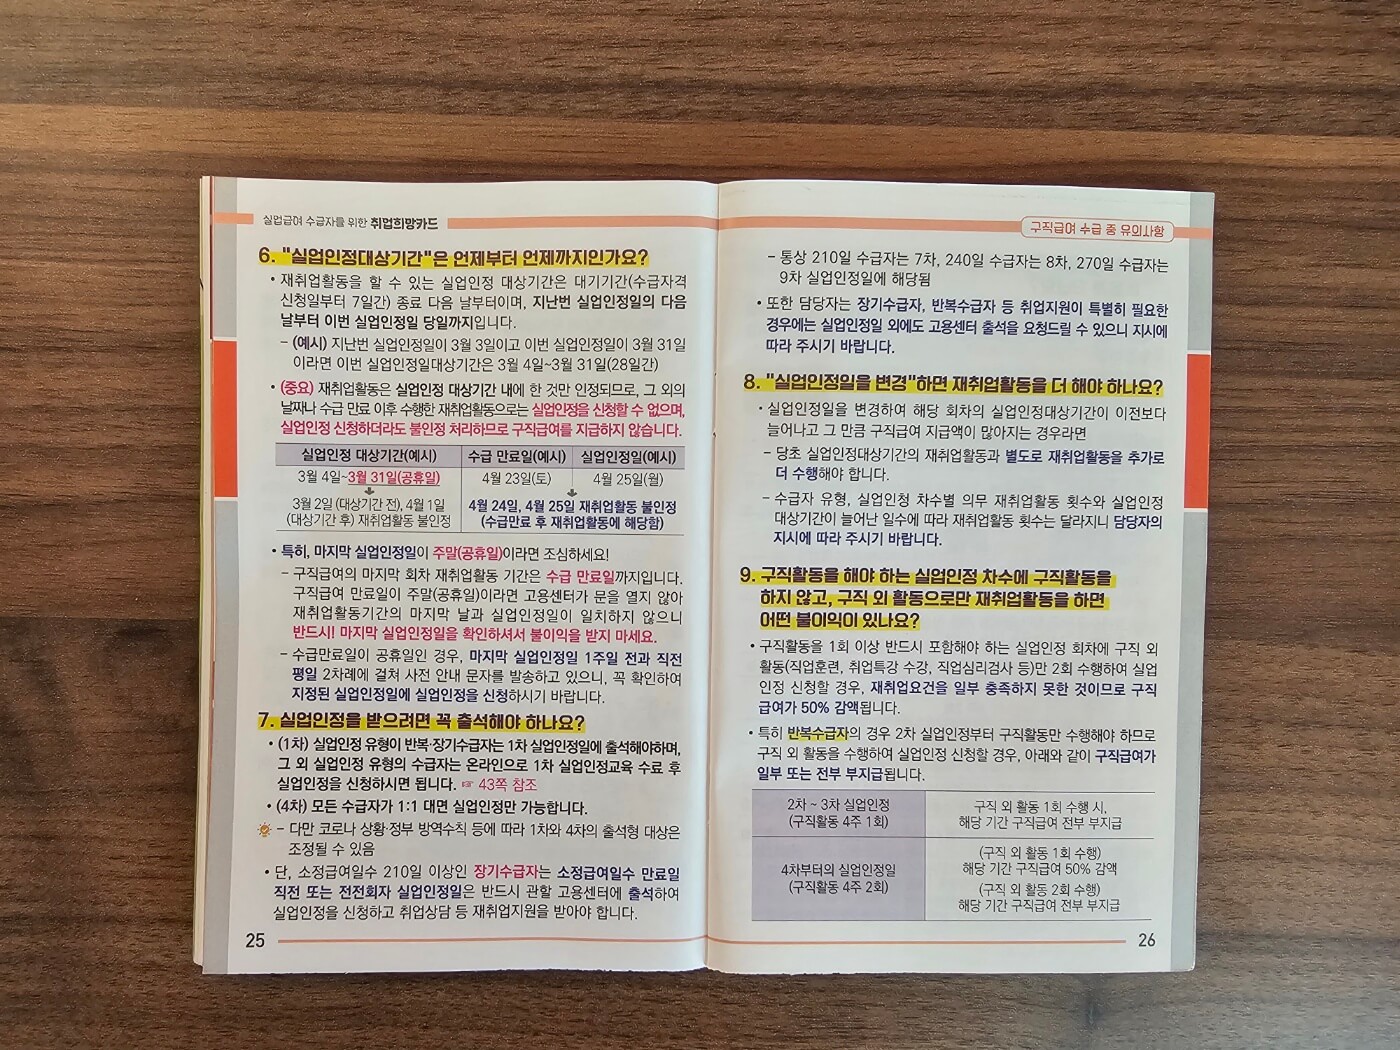 실업급여 수급자를 위한 취업희망카드
6. "실업인정대상기간"은 언제부터 언제까지인가요?
• 재취업활동을 할 수 있는 실업인정 대상기간은 대기기간(수급자격
신청일부터 7일간) 종료 다음 날부터이며, 지난번 실업인정일의 다음
날부터 이번 실업인정일 당일까지입니다.
- (예시) 지난번 실업인정일이 3월 3일이고 이번 실업인정일이 3월 31일
이라면 이번 실업인정일대상기간은 3월 4일~3월 31일(28일간)
• (중요) 재취업활동은 실업인정 대상기간 내에 한 것만 인정되므로, 그 외의
날짜나 수급 만료 이후 수행한 재취업활동으로는 실업인정을 신청할 수 없으며,
실업인정 신청하더라도 불인정 처리하므로 구직급여를 지급하지 않습니다.
실업인정 대상기간(예시) 수급 만료일(예시) 실업인정일(예시)
3월 4일~3월 31일(공휴일) 4월 23일(토) 4월 25일(월)
3월 2일 (대상기간 전), 4월 1일 4월 24일, 4월 25일 재취업활동 불인정
(대상기간 후) 재취업활동 불인정 (수급만료 후 재취업활동에 해당함)
• 특히, 마지막 실업인정일이 주말(공휴일)이라면 조심하세요!
- 구직급여의 마지막 회차 재취업활동 기간은 수급 만료일까지입니다.
구직급여 만료일이 주말(공휴일)이라면 고용센터가 문을 열지 않아
재취업활동기간의 마지막 날과 실업인정일이 일치하지 않으니
반드시! 마지막 실업인정일을 확인하셔서 불이익을 받지 마세요.
- 수급만료일이 공휴일인 경우, 마지막 실업인정일 1주일 전과 직전
평일 2차례에 걸쳐 사전 안내 문자를 발송하고 있으니, 꼭 확인하여
지정된 실업인정일에 실업인정을 신청하시기 바랍니다.
7. 실업인정을 받으려면 꼭 출석해야 하나요?
• (1차) 실업인정 유형이 반복·장기수급자는 1차 실업인정일에 출석해야하며,
그 외 실업인정 유형의 수급자는 온라인으로 1차 실업인정교육 수료 후
실업인정을 신청하시면 됩니다. ☞ 43쪽 참조
• (4차) 모든 수급자가 1:1 대면 실업인정만 가능합니다.
- 다만 코로나 상황·정부 방역수칙 등에 따라 1차와 4차의 출석형 대상은
조정될 수 있음
• 단, 소정급여일수 210일 이상인 장기수급자는 소정급여일수 만료일
직전 또는 전전회자 실업인정일은 반드시 관할 고용센터에 출석하여
실업인정을 신청하고 취업상담 등 재취업지원을 받아야 합니다.
25
구직급여 수급 중 유의사항
- 통상 210일 수급자는 7차, 240일 수급자는 8차, 270일 수급자는
9차 실업인정일에 해당됨
• 또한 담당자는 장기수급자, 반복수급자 등 취업지원이 특별히 필요한
경우에는 실업인정일 외에도 고용센터 출석을 요청드릴 수 있으니 지시에
따라 주시기 바랍니다.
8. "실업인정일을 변경"하면 재취업활동을 더 해야 하나요?
• 실업인정일을 변경하여 해당 회차의 실업인정대상기간이 이전보다
늘어나고 그 만큼 구직급여 지급액이 많아지는 경우라면
- 당초 실업인정대상기간의 재취업활동과 별도로 재취업활동을 추가로
더 수행해야 합니다.
- 수급자 유형, 실업인청 차수별 의무 재취업활동 횟수와 실업인정
대상기간이 늘어난 일수에 따라 재취업활동 횟수는 달라지니 담당자의
지시에 따라 주시기 바랍니다.
9. 구직활동을 해야 하는 실업인정 차수에 구직활동을
하지 않고, 구직 외 활동으로만 재취업활동을 하면
어떤 불이익이 있나요?
• 구직활동을 1회 이상 반드시 포함해야 하는 실업인정 회차에 구직 외
활동(직업훈련, 취업특강 수강, 직업심리검사 등)만 2회 수행하여 실업
인정 신청할 경우, 재취업요건을 일부 충족하지 못한 것이므로 구직
급여가 50% 감액됩니다.
• 특히 반복수급자의 경우 2차 실업인정부터 구직활동만 수행해야 하므로
구직 외 활동을 수행하여 실업인정 신청할 경우, 아래와 같이 구직급여가
일부 또는 전부 부지급됩니다.
2차 ~ 3차 실업인정 구직 외 활동 1회 수행 시,
(구직활동 4주 1회) 해당 기간 구직급여 전부 부지급
(구직 외 활동 1회 수행)
4차부터의 실업인정일 해당 기간 구직급여 50% 감액
(구직활동 4주 2회) (구직 외 활동 2회 수행)
해당 기간 구직급여 전부 부지급
26